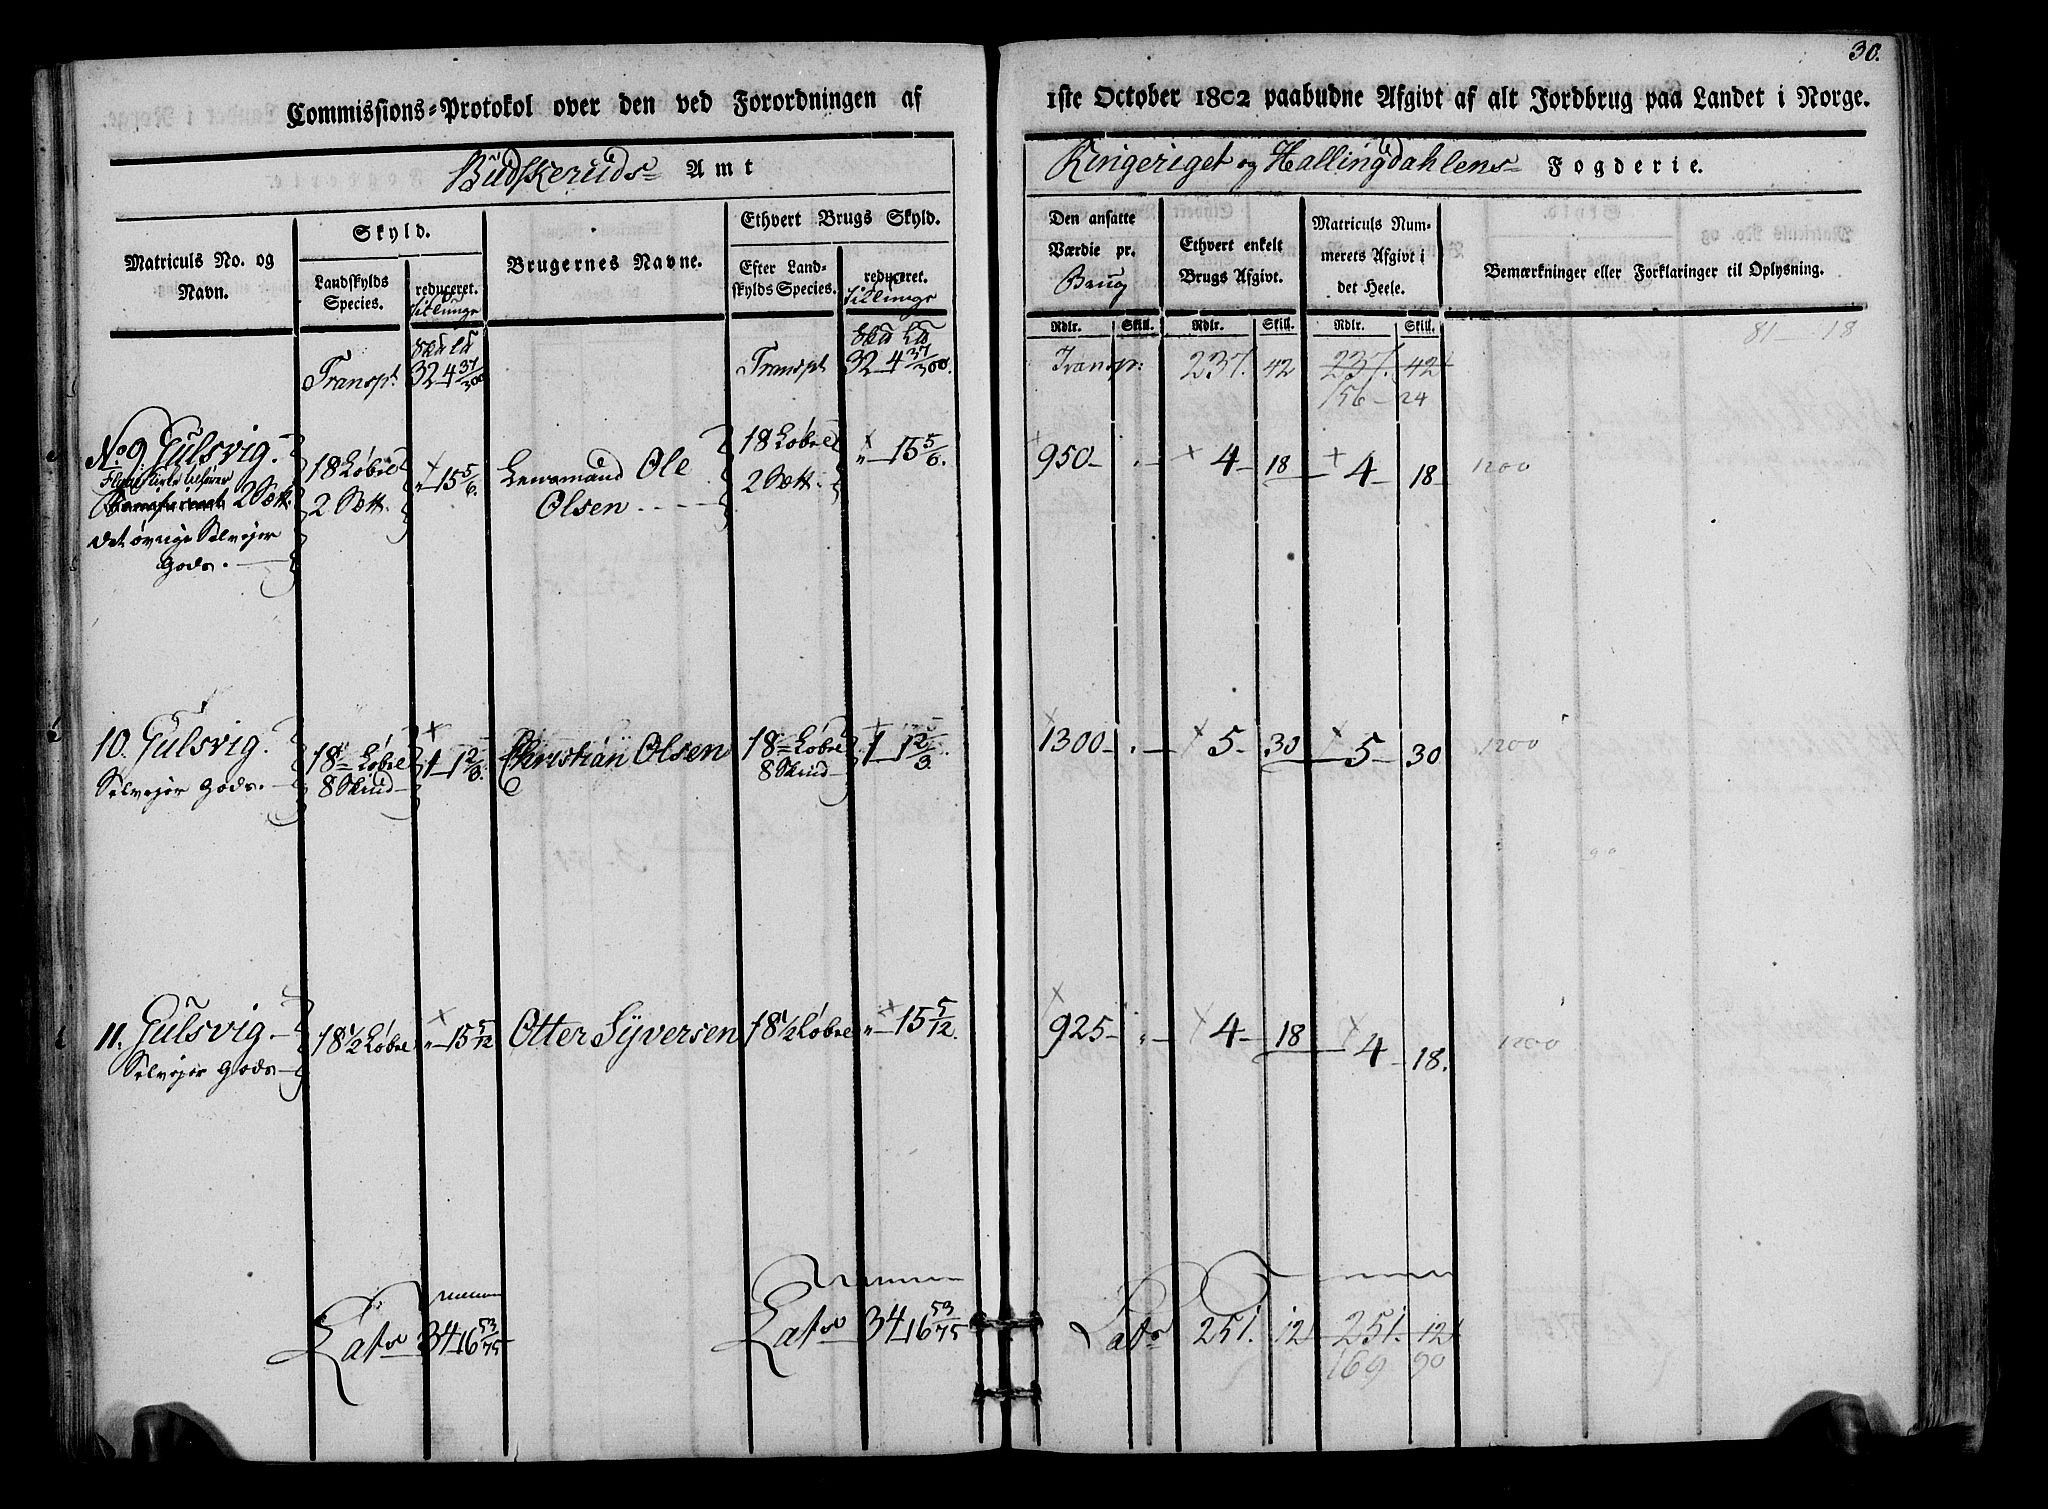 30.
Commissions-Protokol over den ved Forordningen af 1ste October 1802 paabudne Afgivt af alt Jordbrug paa Landet i Norge.
Büdskeruds Amt
Ringeriget og Hallingdahlens Fogderie.
Matriculs No. og Navn.
Skyld.
Landskylds Species.
reduceret.
Brugernes Navne.
Ethvert Brugs Skyld.
Efter Landskylds Species.
reduceret.
Den ansatte Værdie pr. Brug
Ethvert enkelt Brugs Afgivt.
Matriculs Nummerets Afgivt i det Heele.
Bemærkninger eller Forklaringer til Oplysning.
Rdlr. Skill. Rdlr. Skill. Rdlr. Skill.
Transpt 32 4 37/300 Transpt 32 4 37/300. Transp: 237. 42 237. 42
156 - 24
81 - 18
No 9 Gulsvig. 18 Løbe 2 Sett: " 15 5/6. Lensmand Ole Olsen 18 Løbe 2 Sett. " 15 5/6. 950 - 4 - 18 4 - 18 1200
2 Sett:
det øvrige Selvejer Gods.
10. Gulsvig. 18 Løbe 8 Skind 1 1 2/3. Christian Olsen 18 Løbe 8 Skind 1 1 2/3. 1300 - 5 - 30 5 - 30 1200
Selvejer Gods.
11. Gulsvig 18 1/2 Løbe " 15 5/12 Otter Syversen 18 1/2 Løbe " 15 5/12. 925 - 4 - 18 4 - 18. 1200
Selvejer Gods
Lats 34 16 53/75 Lats 34 16 53/75 Lats 251. 12 251. 12
169 90